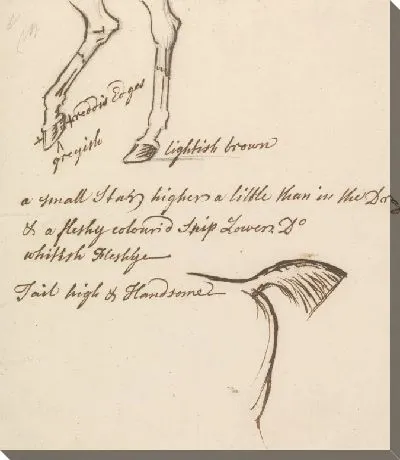 reddis Edges
greyish
lightish brown
a small Star higher a little than in the Do
& a fleshy colour'd Snip Lower Do
whitish Fleshye
Tail high & Handsome